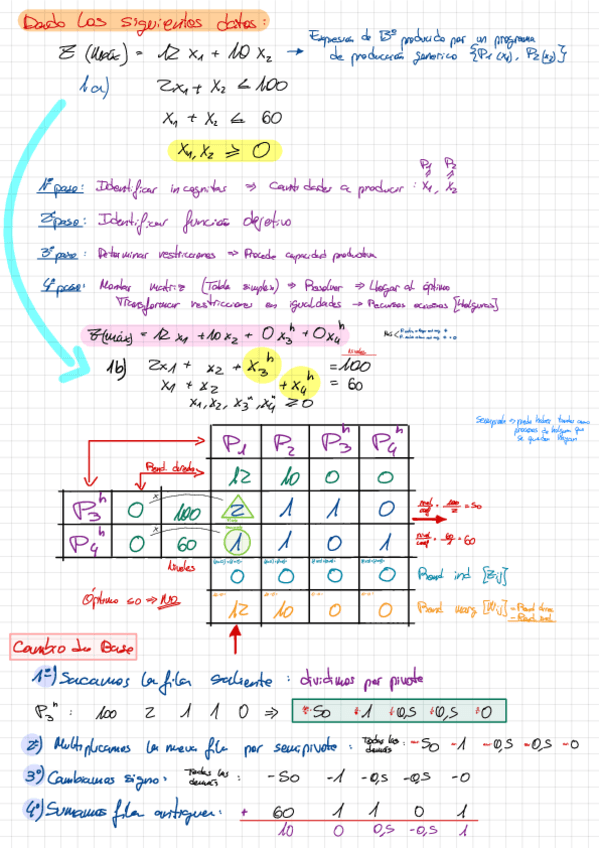 Dado los siguientes datos:
Z (Máx) = 12 x₁ + 10 x₂ → Expresión de Bº producido por un programa
de producción generico {P₁ (x₁), P₂ (x₂)}
1a) 2x₁ + x₂ ≤ 100
x₁ + x₂ ≤ 60
x₁, x₂ ≥ 0
P₁ P₂
1º paso: Identificar incognitas ⇒ Cantidades a producir : x₁, x₂
2º paso: Identificar función objetivo
3º paso: Determinar restricciones ⇒ Procede capacidad productiva
4º paso: Montar matriz (Tabla simplex) ⇒ Resolver ⇒ Llegar al óptimo
Transformar restricciones en igualdades → Recursos ociosos [Holguras]
Z(máx) = 12 x₁ + 10 x₂ + 0 x₃ʰ + 0 x₄ʰ
Niveles
1b) 2x₁ + x₂ + x₃ʰ = 100
x₁ + x₂ + x₄ʰ = 60
x₁, x₂, x₃ʰ, x₄ʰ ≥ 0
P₁ P₂ P₃ʰ P₄ʰ
Rend. directo 12 10 0 0
P₃ʰ 0 100 2 1 1 0 nivel/coef = 100/2 = 50
P₄ʰ 0 60 1 1 0 1 nivel/coef = 60/1 = 60
Niveles 0 0 0 0 Rend ind [Zj]
Óptimo ≤0 ⇒ NO 12 10 0 0 Rend marg [Wj]
Cambio de Base
1º) Sacamos la fila saliente : dividimos por pivote
P₃ʰ : 100 2 1 1 0 ⇒ +50 +1 +0,5 +0,5 +0
2º) Multiplicamos la nueva fila por semipivote : Todos los demás: -50 -1 -0,5 -0,5 -0
3º) Cambiamos signo: Todos los demás: -50 -1 -0,5 -0,5 -0
4º) Sumamos fila antigua: + 60 1 1 0 1
10 0 0,5 -0,5 1